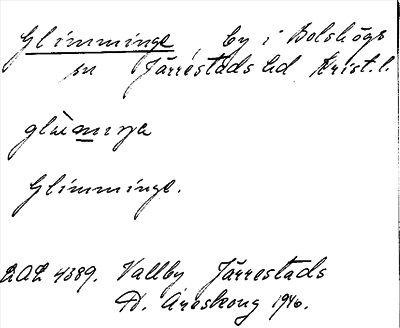 Glimminge, by i Bolshögs
sn Järrestads hd Krist. l.
Glimminge.
LAL 4389. Vallby Järrestads
A. Areskoug 1940.